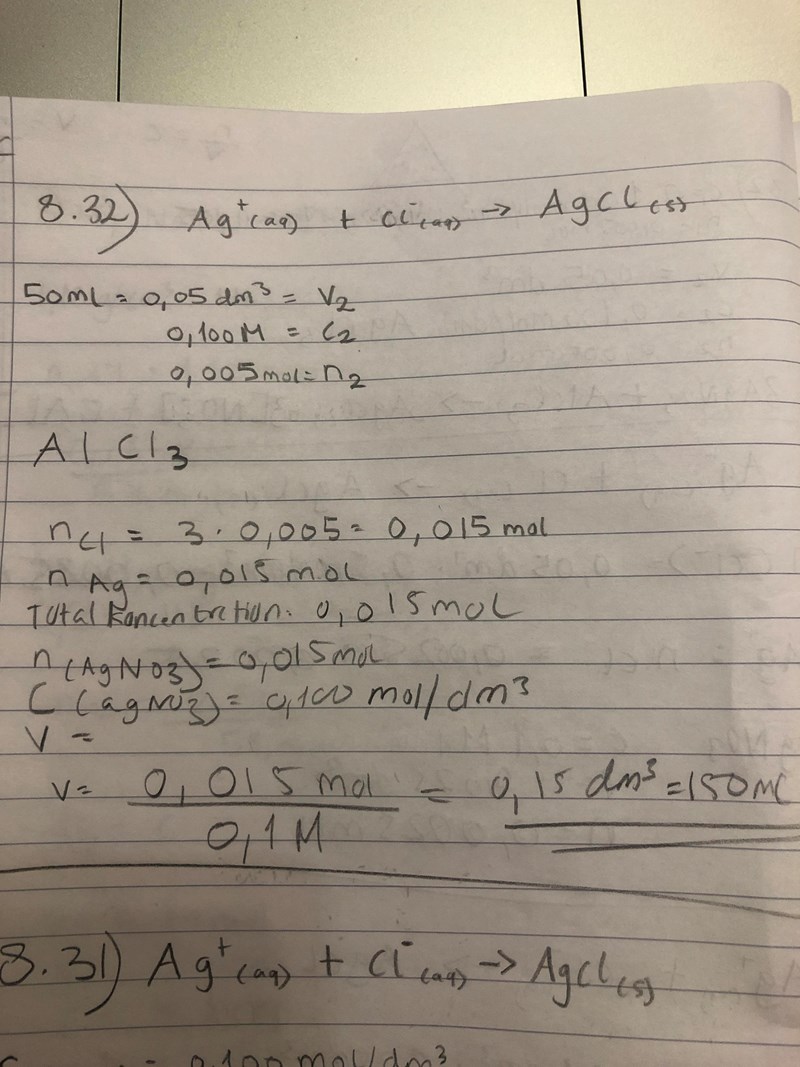 8.32) Ag⁺(aq) + Cl⁻(aq) → AgCl(s)
50ml = 0,05 dm³ = V₂
0,100M = C₂
0,005mol = n₂
AlCl₃
nCl = 3 · 0,005 = 0,015 mol
nAg = 0,015 mol
Total koncentration: 0,015 mol
n(AgNO₃) = 0,015 mol
C(agNO₃) = 0,100 mol/dm³
V =
V = 0,015 mol / 0,1M = 0,15 dm³ = 150ml
8.31) Ag⁺(aq) + Cl⁻(aq) → AgCl(s)
= 0,100 mol/dm³